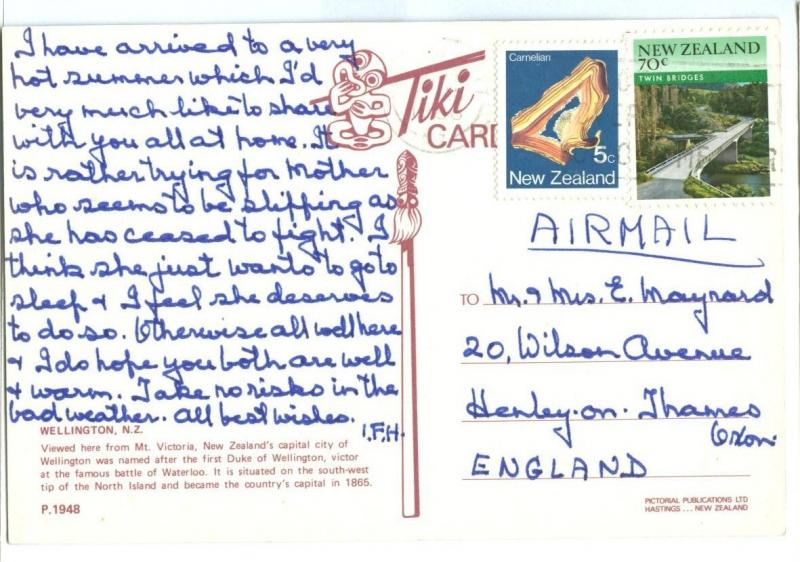 I have arrived to a very
hot summer which I'd
very much like to share
with you all at home. It
is rather trying for Mother
who seems to be slipping as
she has ceased to fight. I
think she just wants to go to
sleep & I feel she deserves
to do so. Otherwise all well here
& I do hope you both are well
& warm. Take no risks in the
bad weather. All best wishes.
I.F.H.
WELLINGTON, N.Z.
Viewed here from Mt. Victoria, New Zealand's capital city of
Wellington was named after the first Duke of Wellington, victor
at the famous battle of Waterloo. It is situated on the south-west
tip of the North Island and became the country's capital in 1865.
P.1948
Tiki
CARD
Carnelian
5c
New Zealand
NEW ZEALAND
70c
TWIN BRIDGES
AIRMAIL
TO Mr. & Mrs. E. Maynard
20, Wilson Avenue
Henley-on-Thames
Oxon
ENGLAND
PICTORIAL PUBLICATIONS LTD
HASTINGS ... NEW ZEALAND